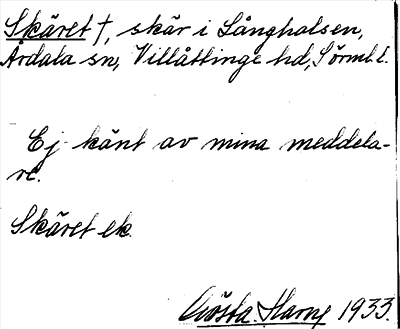 Skäret †, skär i Långhalsen,
Årdala sn, Villåttinge hd, Sörml. l.
Ej känt av mina meddela-
re.
Skäret ek.
Gösta Harng 1933.